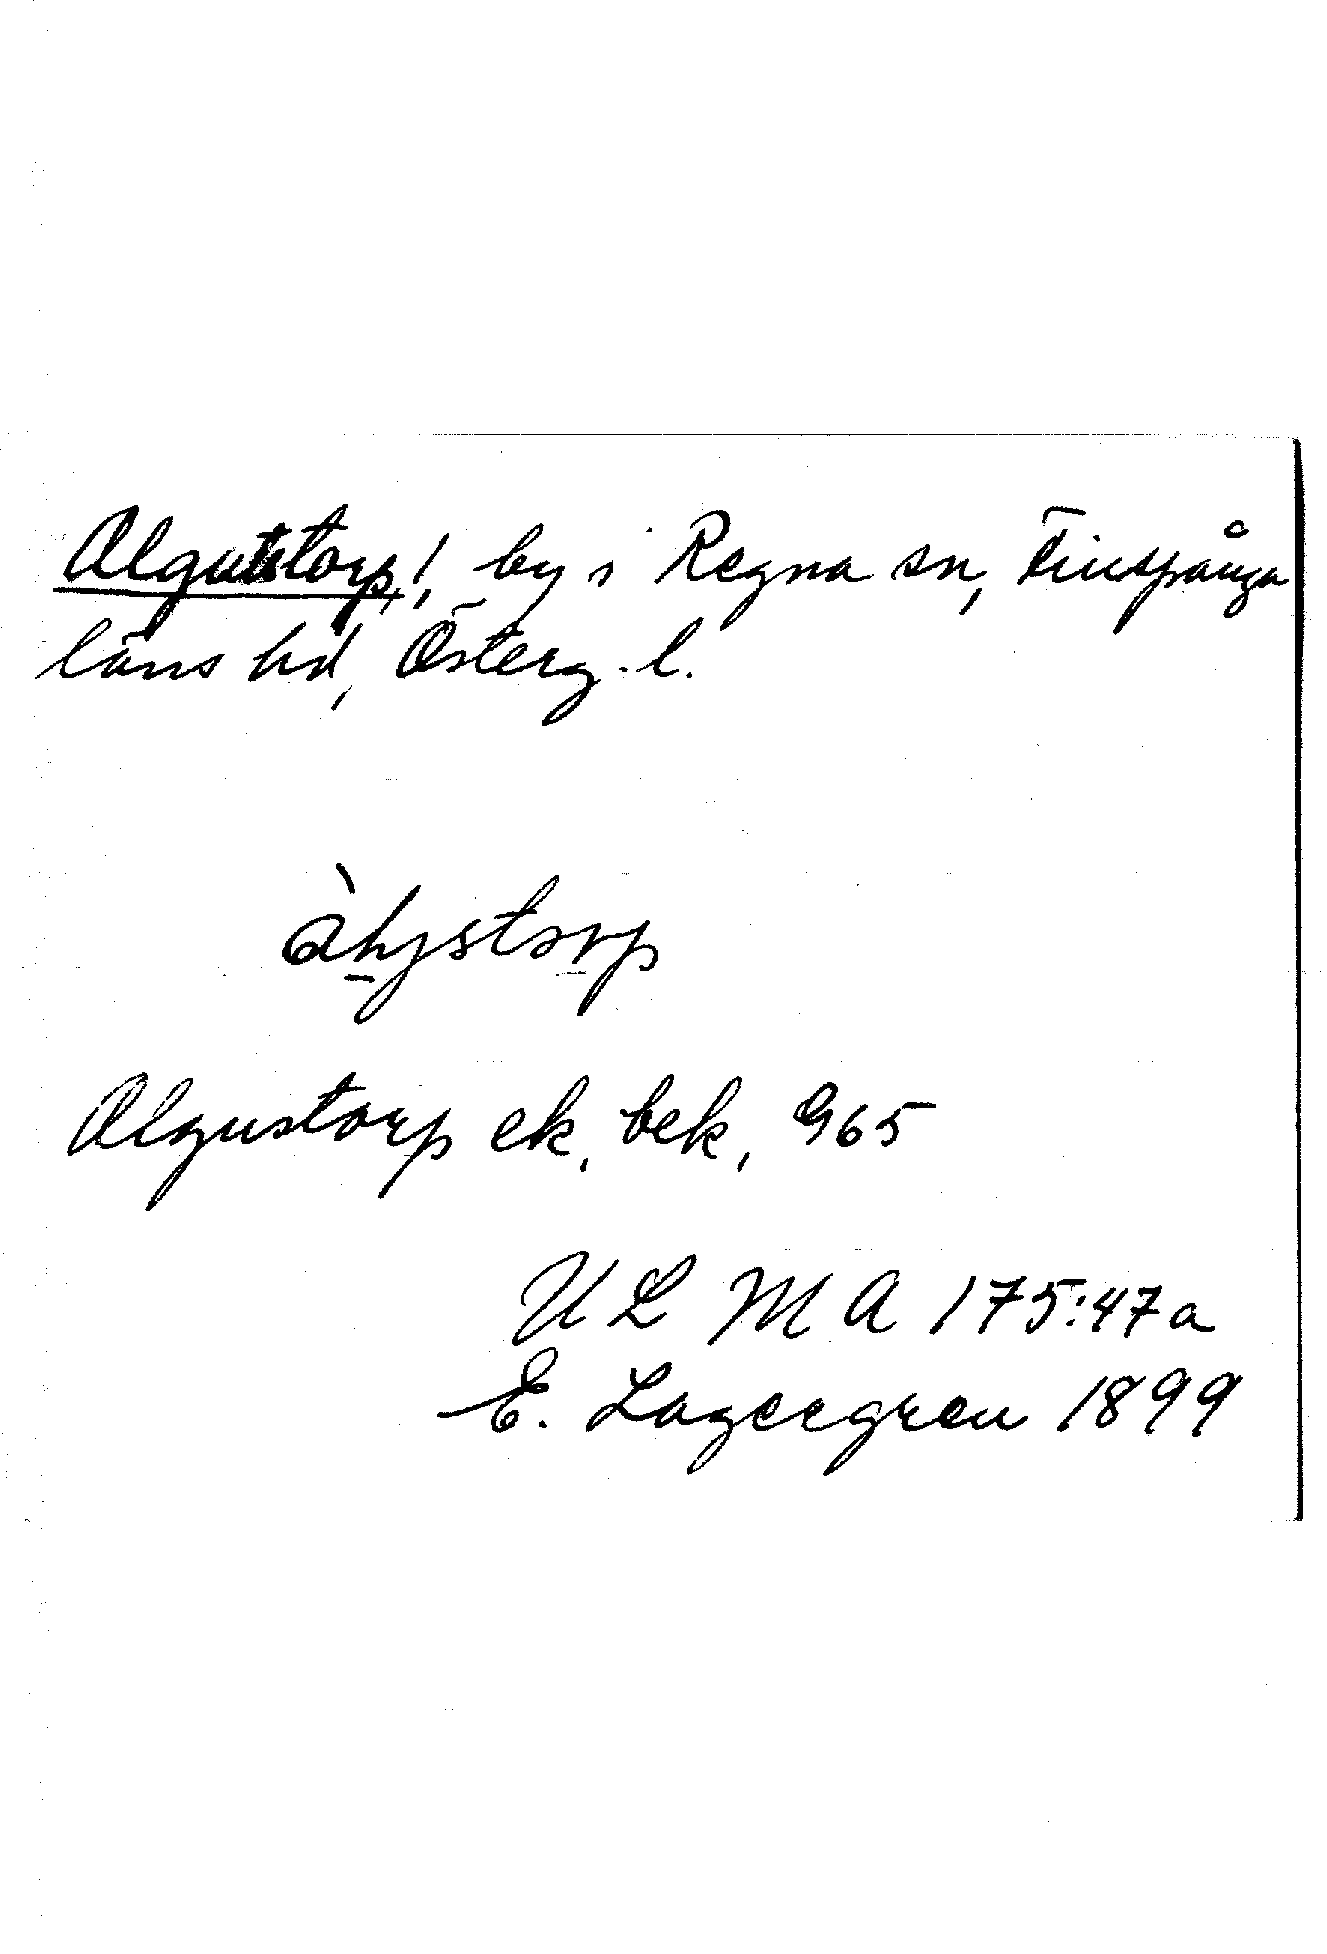 Algutstorp!, by i Regna sn, Finspånga
läns hd, Österg. l.
àḻystoṟp
Algustorp ek. bek, 965
U L M A 175:47a
E. Lagergren 1899